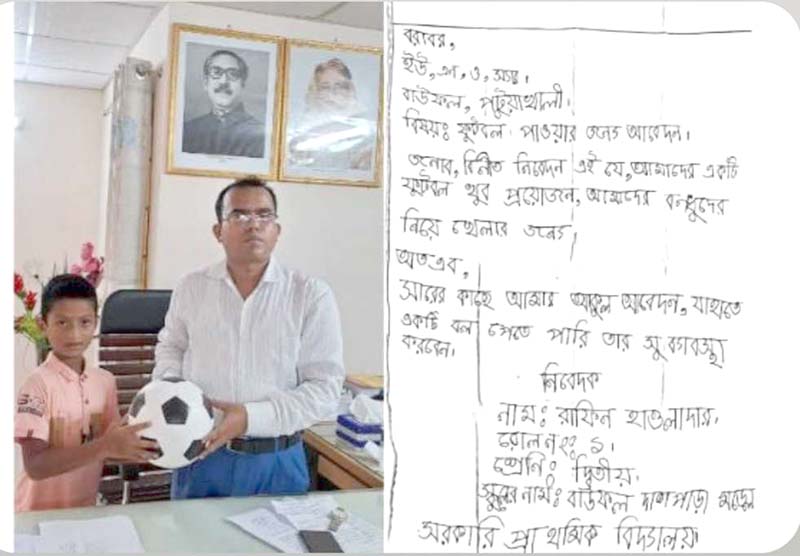 বরাবর,
ইউ, এন, ও, স্যার।
বাউফল, পটুয়াখালী।
বিষয়ঃ ফুটবল পাওয়ার জন্যে আবেদন।
জনাব, বিনীত নিবেদন এই যে, আমাদের একটি
ফুটবল খুব প্রয়োজন, আমাদের বন্ধুদের
নিয়ে খেলার জন্যে।
অতএব,
স্যারের কাছে আমার আকুল আবেদন, যাহাতে
একটি বল পেতে পারি তার সু ব্যাবস্থা
করবেন।
নিবেদক
নাম: রাফিন হাওলাদার।
রোল নং: ১।
শ্রেণি: দ্বিতীয়।
স্কুলের নাম: বাউফল দাশপাড়া মডেল
সরকারি প্রাথমিক বিদ্যালয়